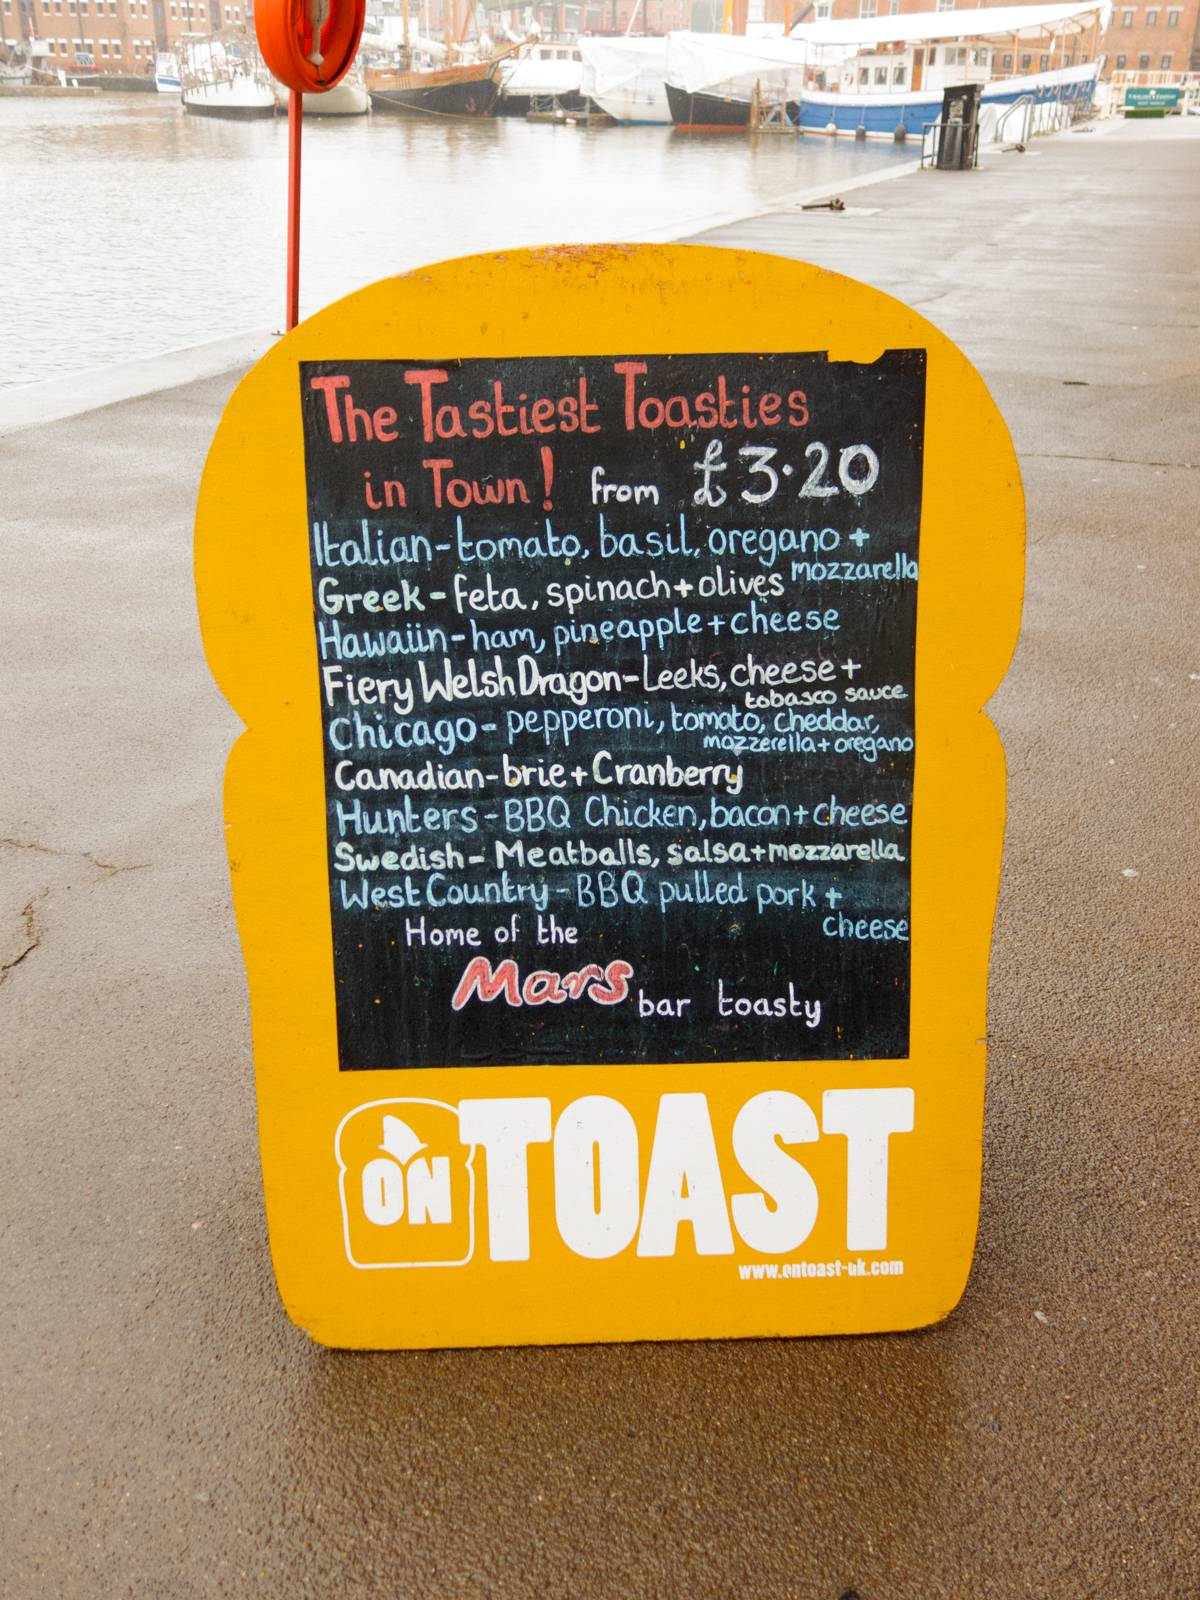 The Tastiest Toasties
in Town! from £3.20
Italian-tomato, basil, oregano +
mozzarella
Greek-feta, spinach+olives
Hawaiin-ham, pineapple+cheese
Fiery Welsh Dragon-Leeks, cheese+
tobasco sauce
Chicago-pepperoni, tomato, cheddar,
mozzerella+oregano
Canadian-brie+Cranberry
Hunters-BBQ Chicken, bacon+cheese
Swedish-Meatballs, salsa+mozzarella
West Country-BBQ pulled pork +
cheese
Home of the
Mars bar toasty
ON TOAST
www.ontoast-uk.com